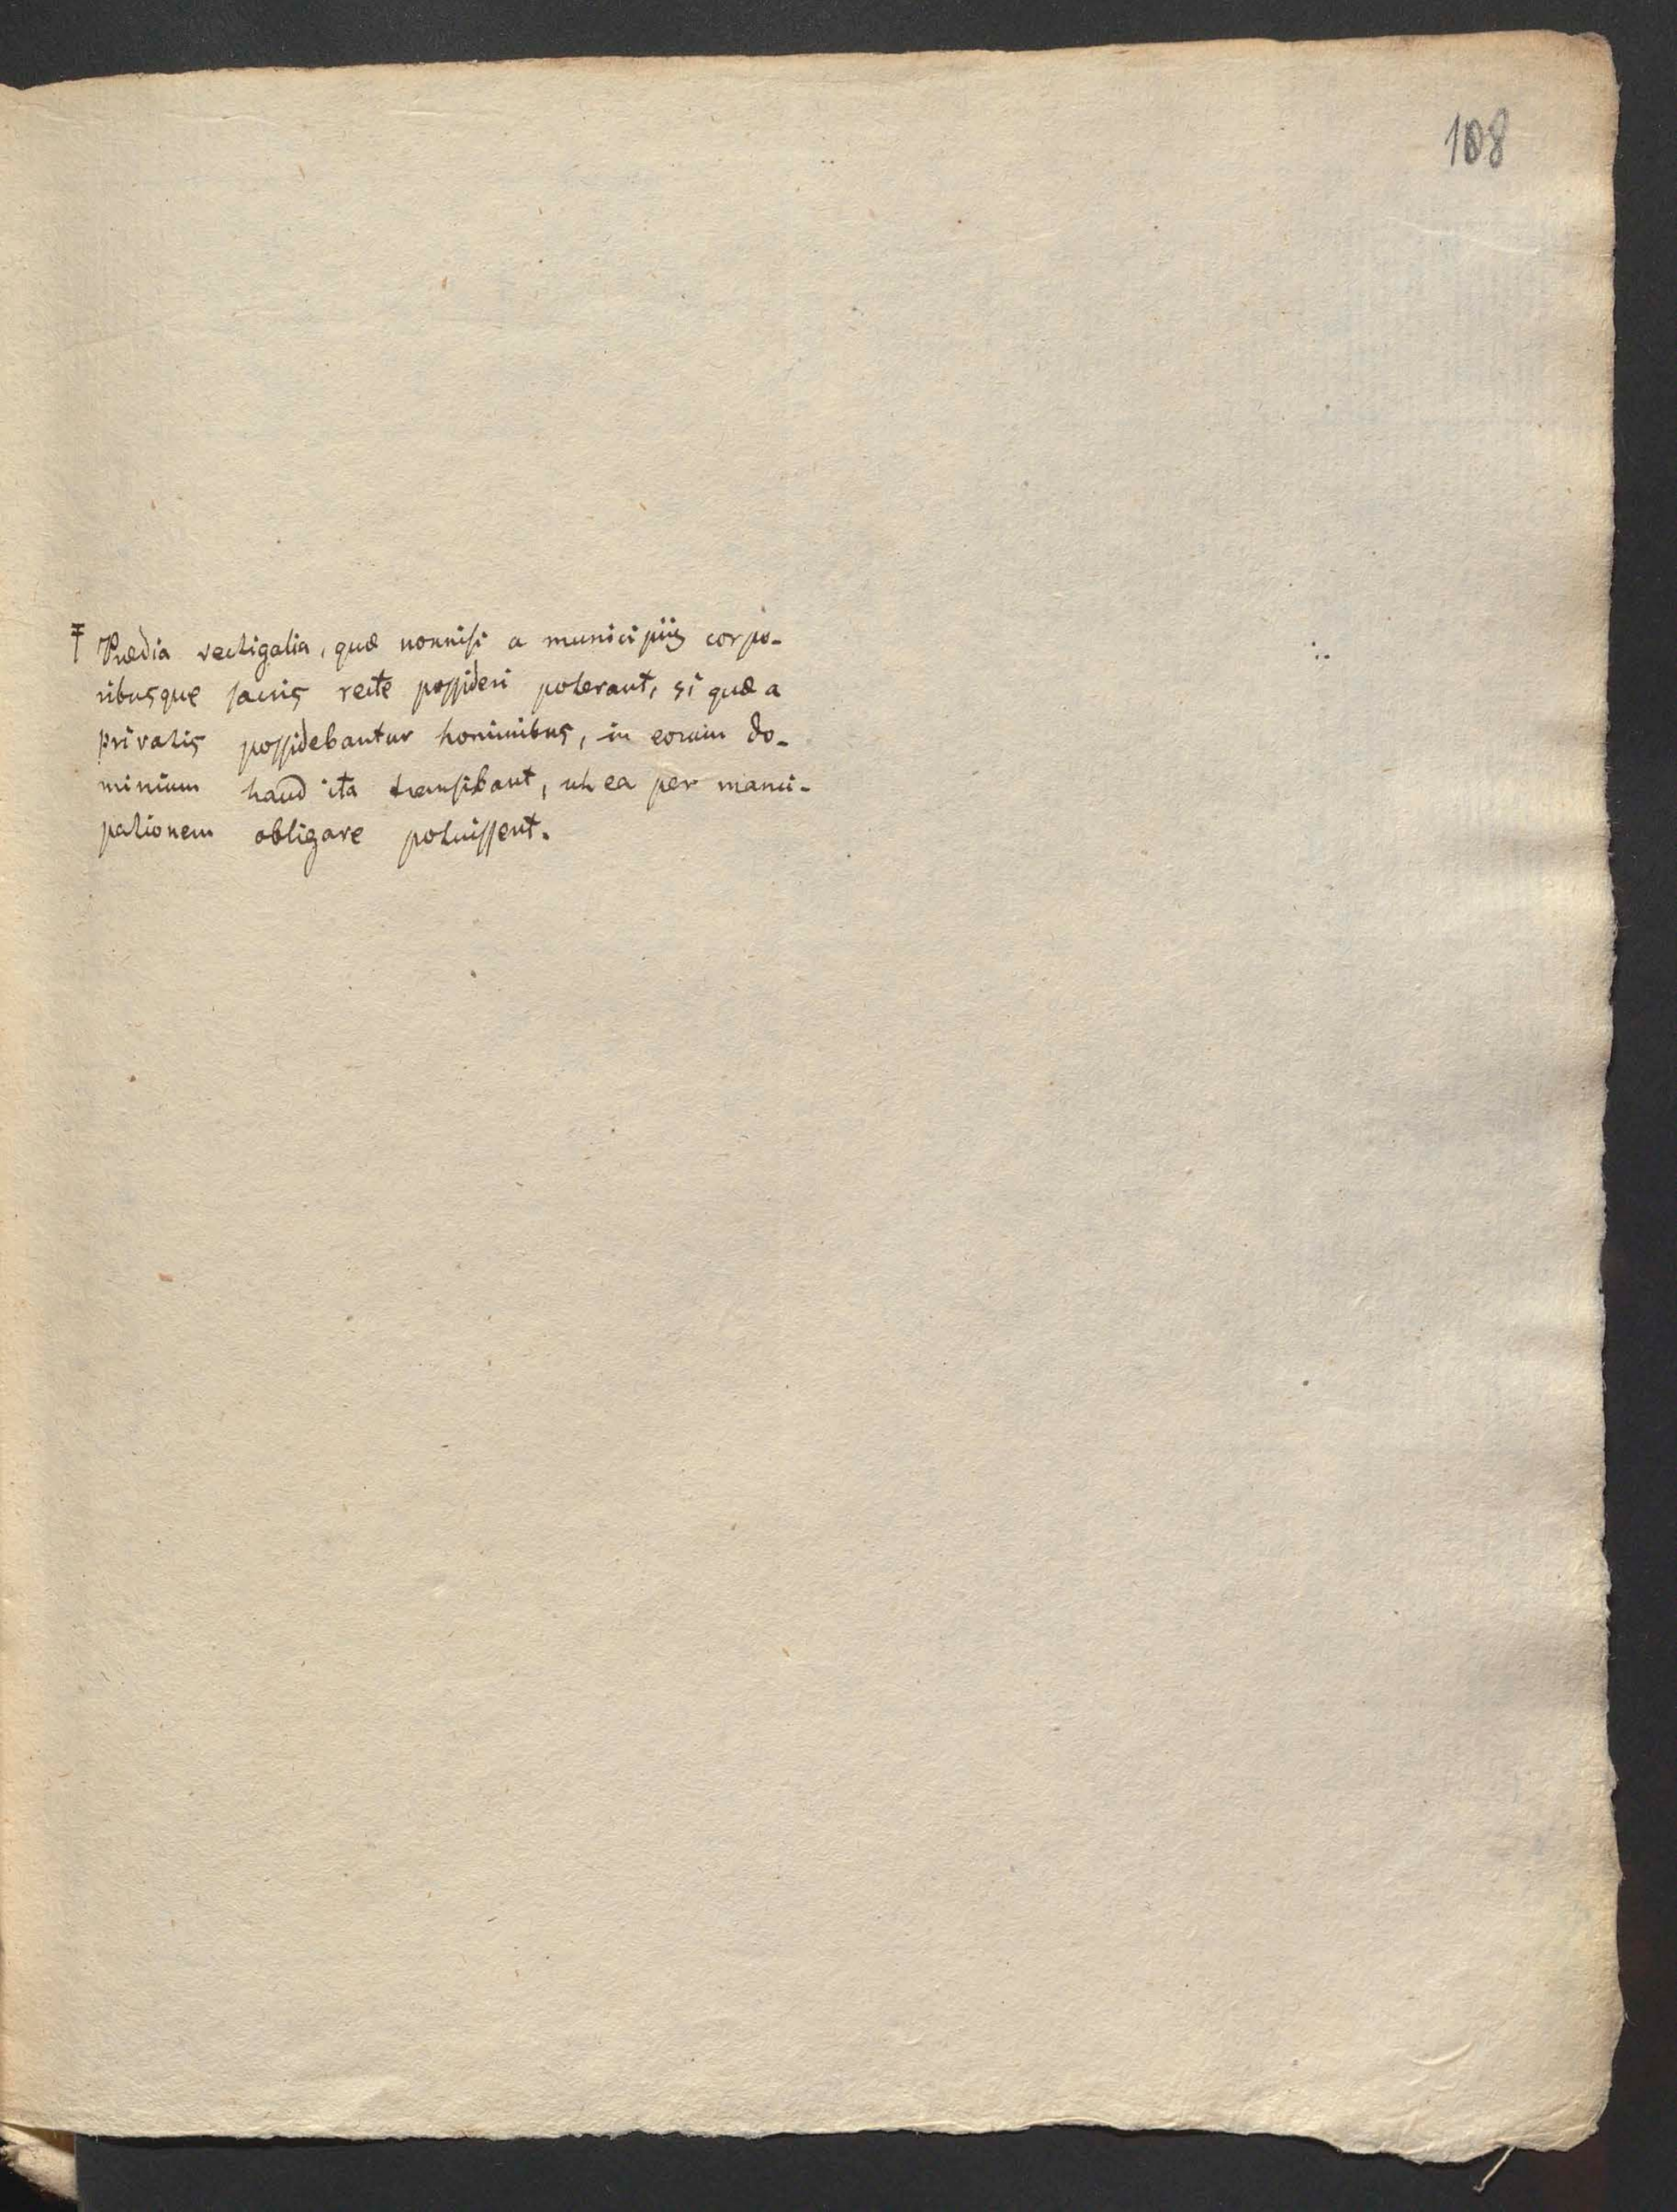 108
‡ Prædia vectigalia, quæ nonnisi a municipiis corpo-
ribusque sacris recte possideri poterant, si quæ a
privatis possidebantur hominibus, in eorum do-
minium haud ita transibant, ut ea per manci-
pationem obligare potuissent.